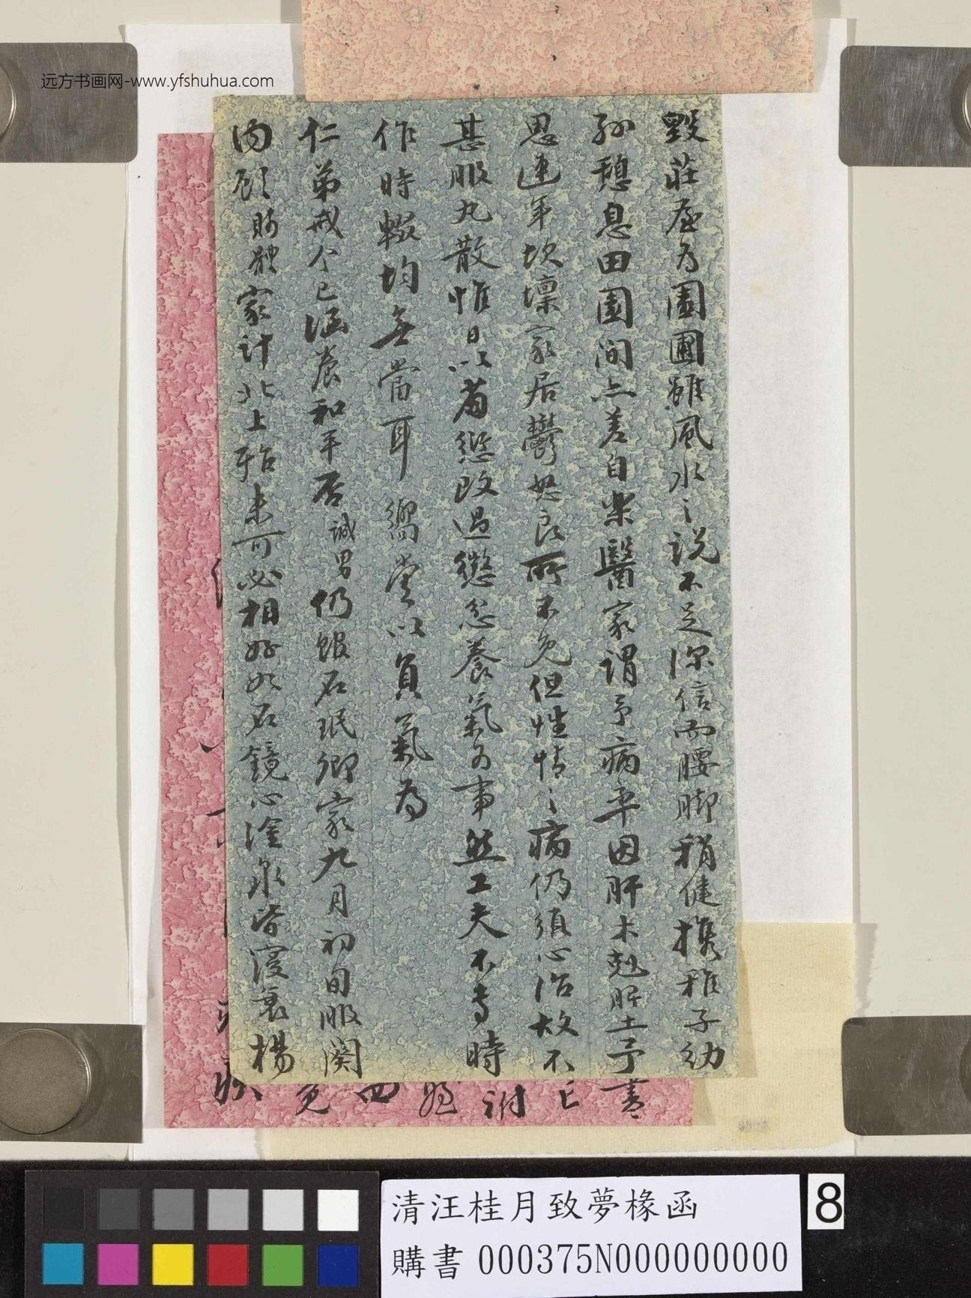 远方书画网-www.yfshuhua.com
毀莊屋为園圃雖風水之說不足深信而腰脚稍健携稚子幼
孫憩息田園间亦差自樂醫家謂予病率因肝木剋脾土予
思連年坎壈家居鬱怒良所不免但性情之病仍須心治故不
甚服丸散惟日以省愆改過懲忿養氣为事然工夫不專時
作時輟均無當耳嚮嘗以負氣為
仁弟戒今已涵養和平否誠男仍館石珉卿家九月初旬服闋
内顧財難家計北上殆未可必相好如石鏡心淦泉皆寖衰楊
清汪桂月致夢椽函
購書 000375N000000000
8